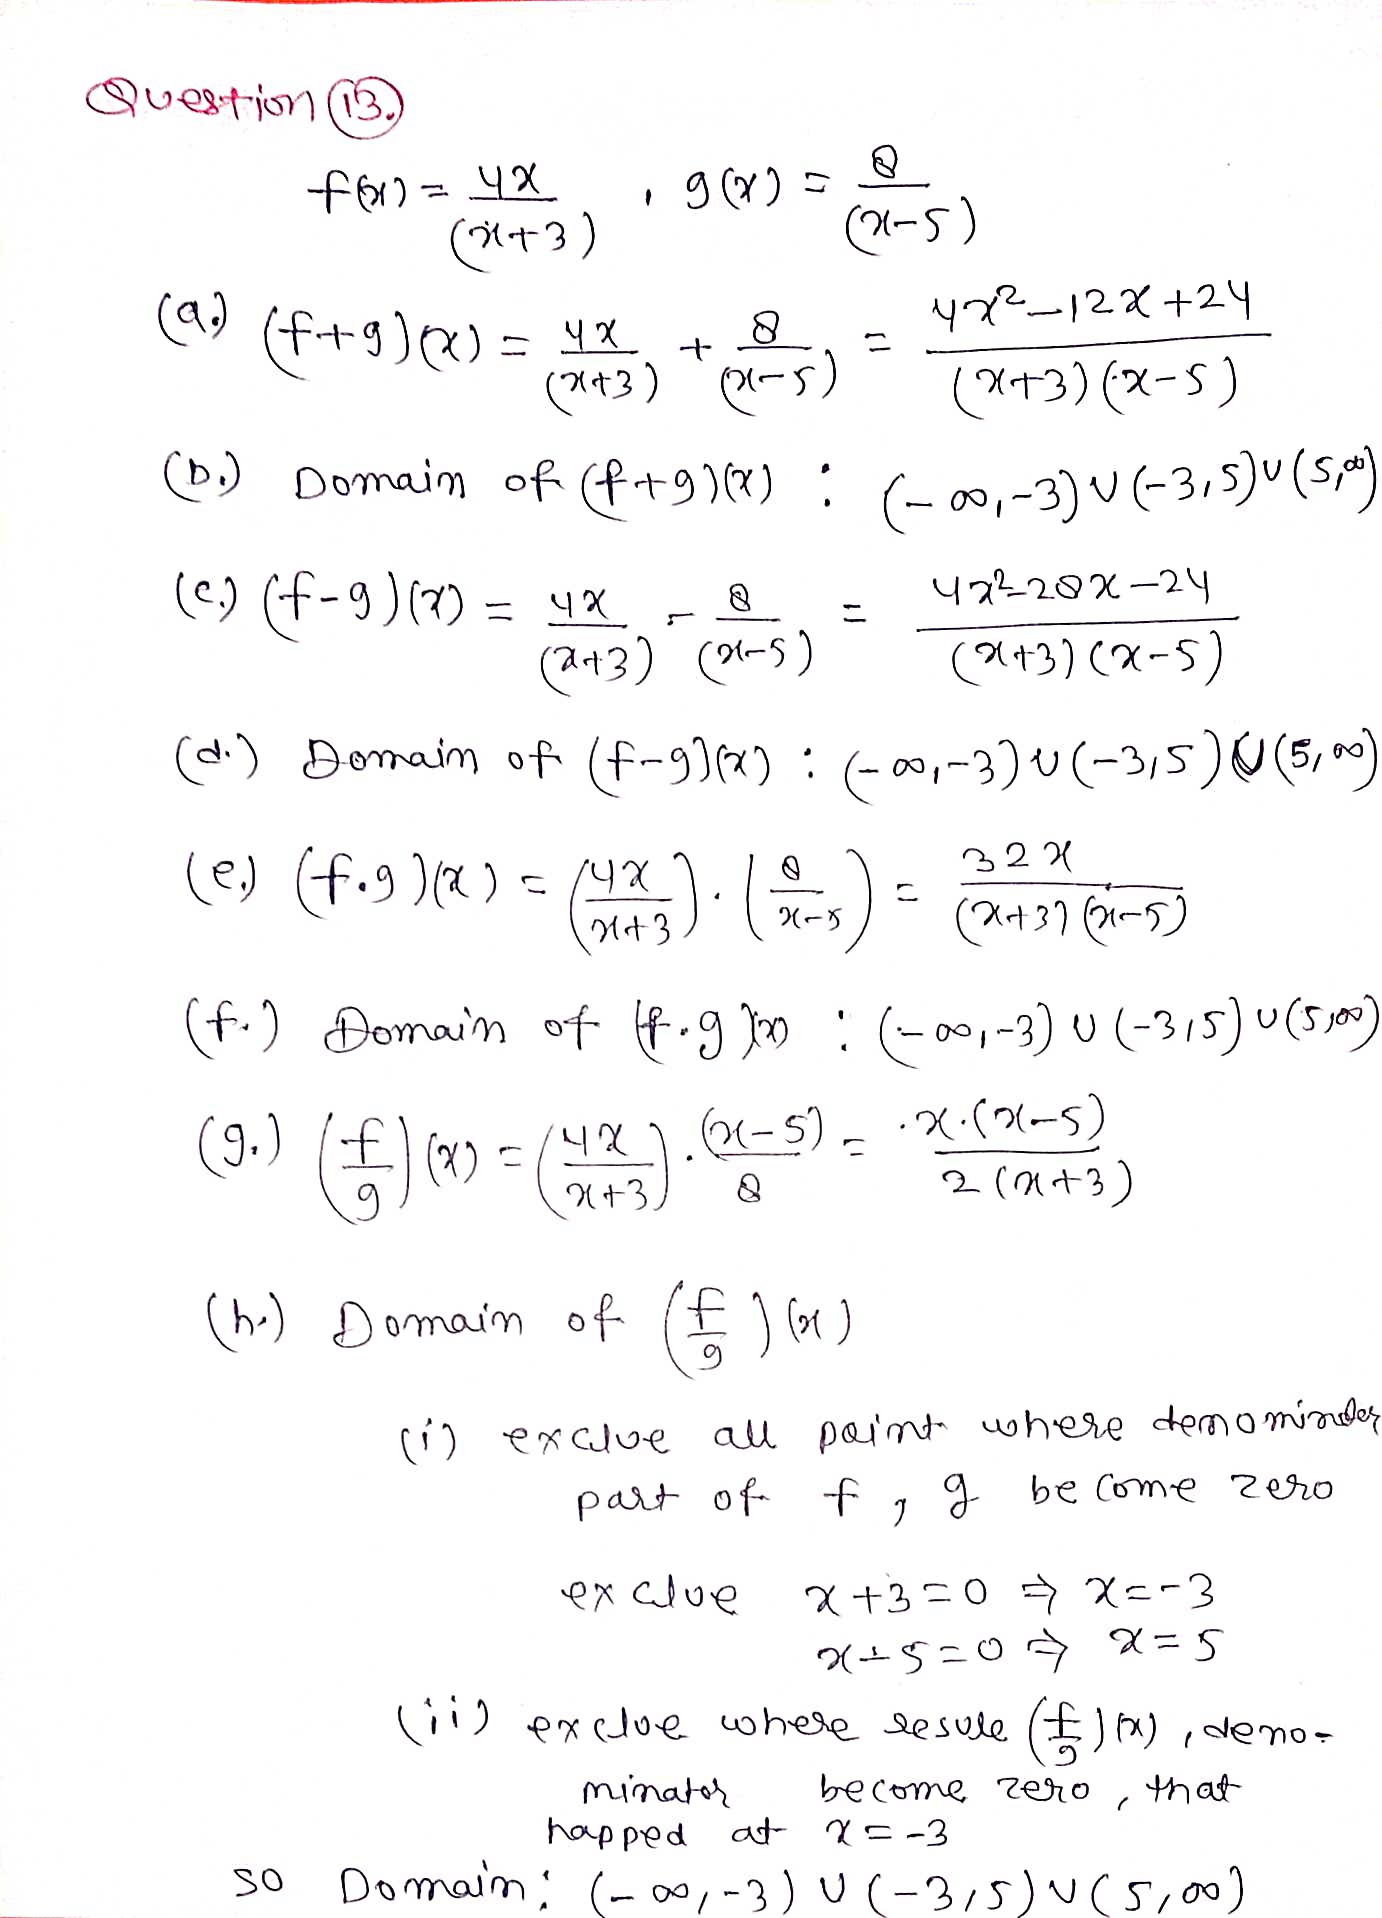 Question (13.)
f(x) = 4x/(x+3) , g(x) = 8/(x-5)
(a.) (f+g)(x) = 4x/(x+3) + 8/(x-5) = 4x²-12x+24/(x+3)(x-5)
(b.) Domain of (f+g)(x) : (-∞,-3) ∪ (-3,5) ∪ (5,∞)
(c.) (f-g)(x) = 4x/(x+3) - 8/(x-5) = 4x²-28x-24/(x+3)(x-5)
(d.) Domain of (f-g)(x) : (-∞,-3) ∪ (-3,5) ∪ (5,∞)
(e.) (f.g)(x) = (4x/x+3) . (8/x-5) = 32x/(x+3)(x-5)
(f.) Domain of (f.g)(x) : (-∞,-3) ∪ (-3,5) ∪ (5,∞)
(g.) (f/g)(x) = (4x/x+3) . (x-5)/8 = x.(x-5)/2(x+3)
(h.) Domain of (f/g)(x)
(i) exclue all point where
part of f , g become zero
exclue x+3=0 ⇒ x=-3
x-5=0 ⇒ x=5
(ii) excloe where resule (f/g)(x) , deno-
minator become zero , that
happed at x=-3
so Domain: (-∞,-3) ∪ (-3,5) ∪ (5,∞)